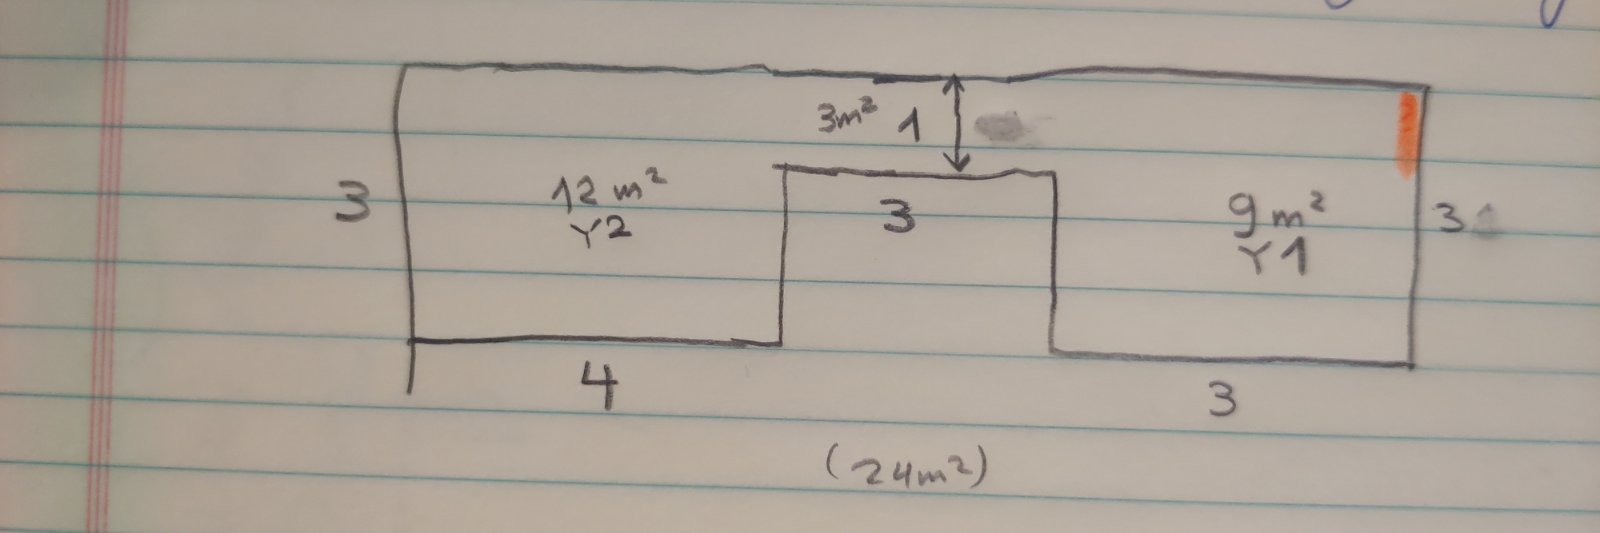 3m² 1
3
12 m²
Y2
3
9 m²
Y1
3
4
3
(24m²)